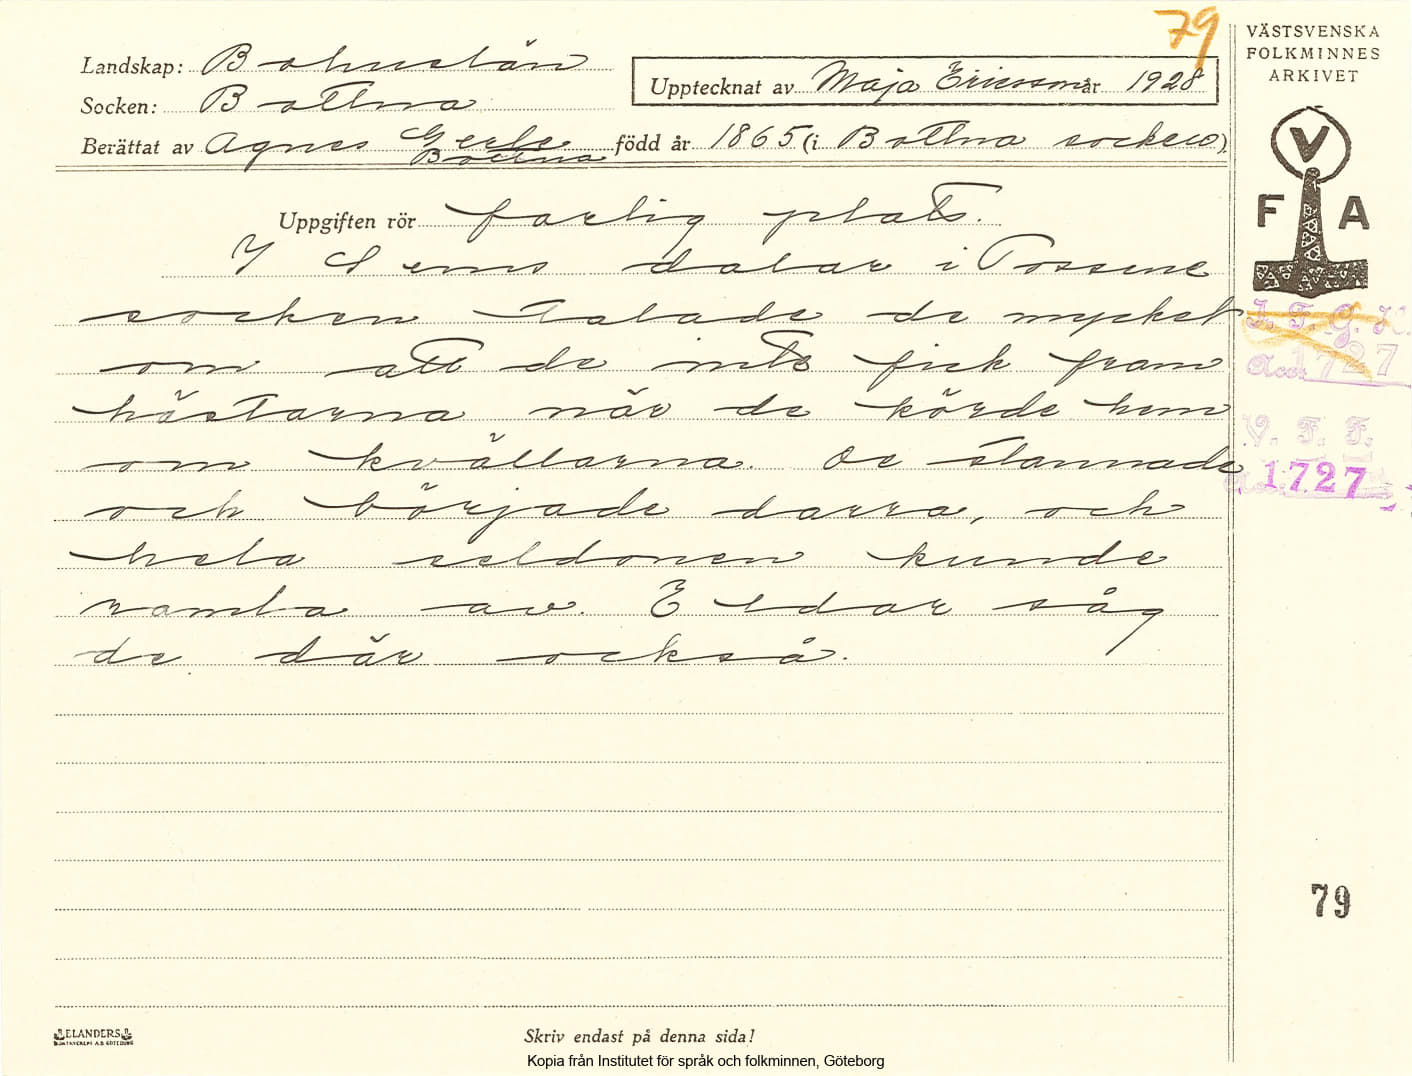 79
VÄSTSVENSKA
FOLKMINNES
ARKIVET
V
F A
Landskap: Bohuslän
Socken: Bottna
Upptecknat av Maja Ericsson år 1928
Berättat av Agnes Gerle född år 1865 (i Bottna socken)
Bottna
Uppgiften rör farlig plats.
I Sems dalar i Tossene
socken talade de mycket
om att de inte fick fram
hästarna när de körde hem
om kvällarna. De stannade
och började darra, och
hela seldonen kunde
ramla av. Eldar såg
de där också.
I. F. G. H.
Acc. 1727
V. F. F.
1727
79
ELANDERS
Skriv endast på denna sida!
Kopia från Institutet för språk och folkminnen, Göteborg